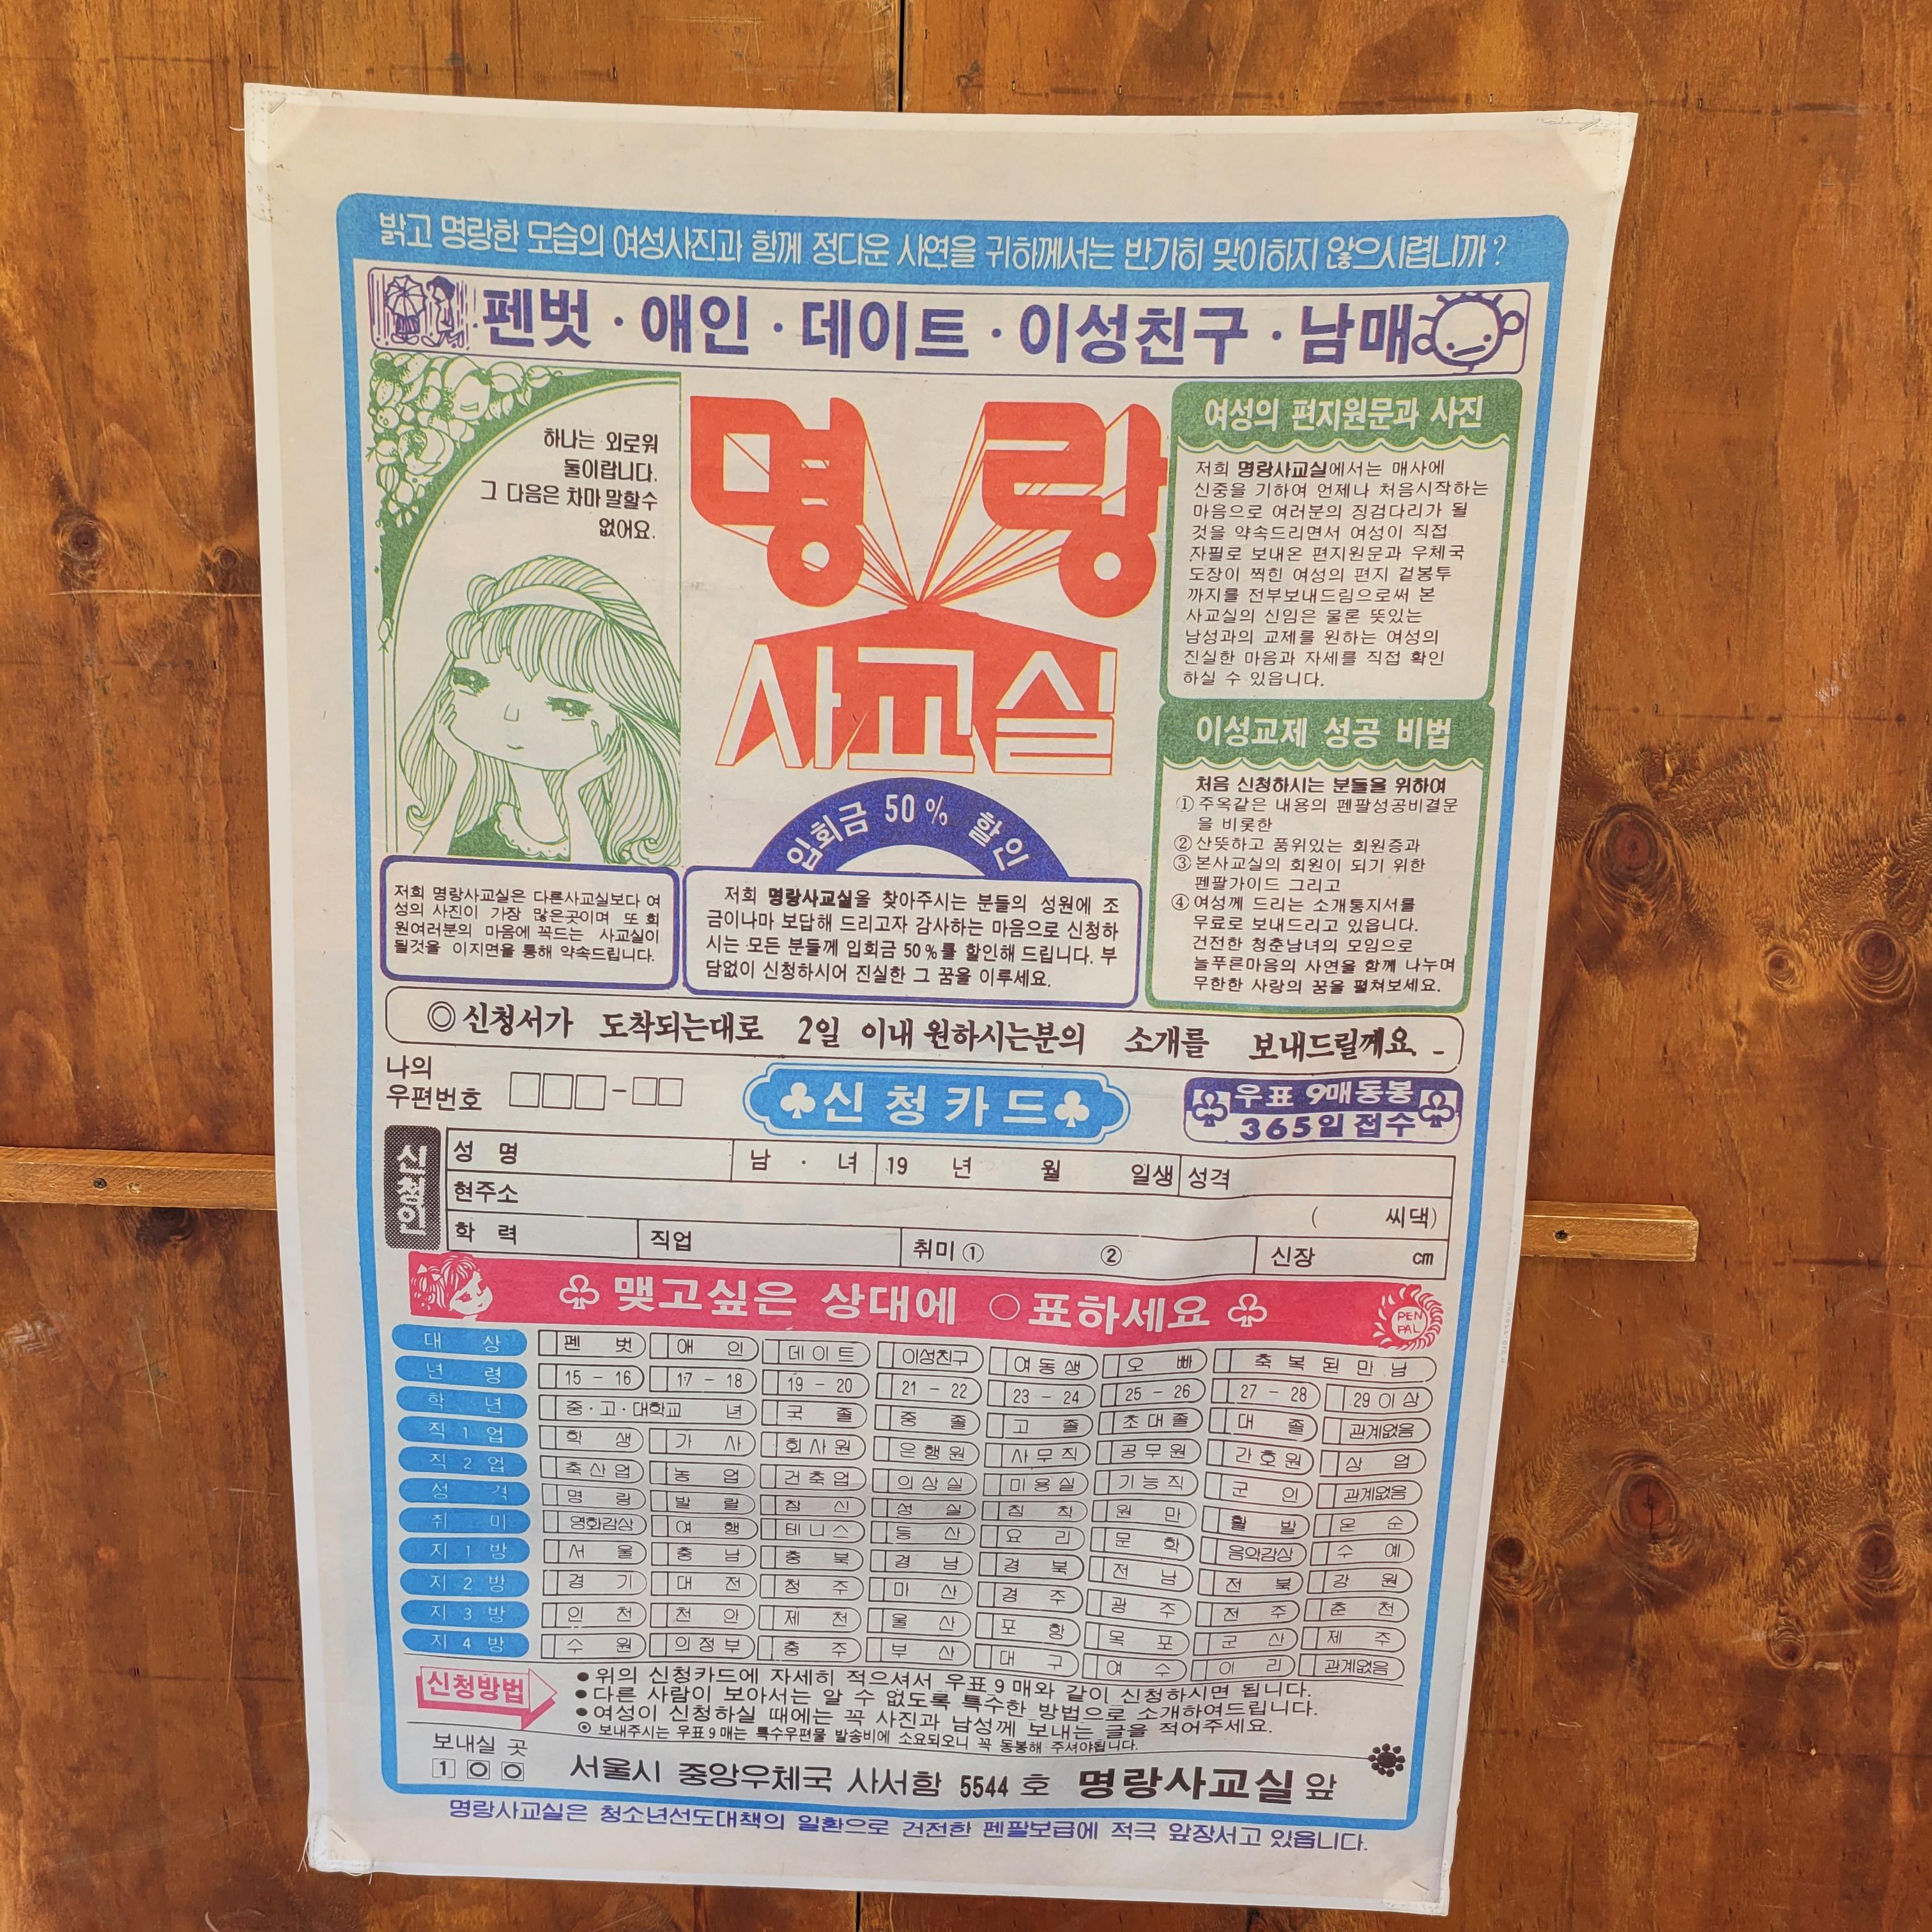 밝고 명랑한 모습의 여성사진과 함께 정다운 사연을 귀하께서는 반가히 맞이하지 않으시렵니까?
펜벗·애인·데이트·이성친구·남매
하나는 외로워
둘이랍니다.
그 다음은 차마 말할수
없어요.
명랑
사교실
입회금 50% 할인
여성의 편지원문과 사진
저희 명랑사교실에서는 매사에
신중을 기하여 언제나 처음시작하는
마음으로 여러분의 징검다리가 될
것을 약속드리면서 여성이 직접
자필로 보내온 편지원문과 우체국
도장이 찍힌 여성의 편지 겉봉투
까지를 전부보내드림으로써 본
사교실의 신임은 물론 뜻있는
남성과의 교제를 원하는 여성의
진실한 마음과 자세를 직접 확인
하실 수 있읍니다.
이성교제 성공 비법
처음 신청하시는 분들을 위하여
① 주옥같은 내용의 펜팔성공비결문
을 비롯한
② 산뜻하고 품위있는 회원증과
③ 본사교실의 회원이 되기 위한
펜팔가이드 그리고
④ 여성께 드리는 소개통지서를
무료로 보내드리고 있읍니다.
건전한 청춘남녀의 모임으로
늘푸른마음의 사연을 함께 나누며
무한한 사랑의 꿈을 펼쳐보세요.
저희 명랑사교실은 다른사교실보다 여
성의 사진이 가장 많은곳이며 또 회
원여러분의 마음에 꼭드는 사교실이
될것을 이지면을 통해 약속드립니다.
저희 명랑사교실을 찾아주시는 분들의 성원에 조
금이나마 보답해 드리고자 감사하는 마음으로 신청하
시는 모든 분들께 입회금 50%를 할인해 드립니다. 부
담없이 신청하시어 진실한 그 꿈을 이루세요.
◎신청서가 도착되는대로 2일 이내 원하시는분의 소개를 보내드릴께요
나의
우편번호 □□□-□□
♣신청카드♣
우표 9매동봉
365일 접수
신청인
성 명 남 · 녀 19 년 월 일생 성격
현주소 ( 씨댁)
학 력 직업 취미 ① ② 신장 cm
♧ 맺고싶은 상대에 ○표하세요 ♧
PEN
PAL
대 상 펜 벗 애 인 데이트 이성친구 여동생 오 빠 축복된만남
년 령 15-16 17-18 19-20 21-22 23-24 25-26 27-28 29이상
학 년 중·고·대학교 년 국 졸 중 졸 고 졸 초대졸 대 졸 관계없음
직1업 학 생 가 사 회사원 은행원 사무직 공무원 간호원 상 업
직2업 축산업 농 업 건축업 의상실 미용실 기능직 군 인 관계없음
성 격 명 랑 발 랄 참 신 성 실 침 착 원 만 활 발 온 순
취 미 영화감상 여 행 테니스 등 산 요 리 문 학 음악감상 수 예
지1방 서 울 충 남 충 북 경 남 경 북 전 남 전 북 강 원
지2방 경 기 대 전 청 주 마 산 경 주 광 주 전 주 춘 천
지3방 인 천 천 안 제 천 울 산 포 항 목 포 군 산 제 주
지4방 수 원 의정부 충 주 부 산 대 구 여 수 이 리 관계없음
신청방법
●위의 신청카드에 자세히 적으셔서 우표 9매와 같이 신청하시면 됩니다.
●다른 사람이 보아서는 알 수 없도록 특수한 방법으로 소개하여드립니다.
●여성이 신청하실 때에는 꼭 사진과 남성께 보내는 글을 적어주세요.
⊙ 보내주시는 우표9매는 특수우편물 발송비에 소요되오니 꼭 동봉해 주셔야됩니다.
보내실 곳
100
서울시 중앙우체국 사서함 5544 호 명랑사교실 앞
명랑사교실은 청소년선도대책의 일환으로 건전한 펜팔보급에 적극 앞장서고 있읍니다.